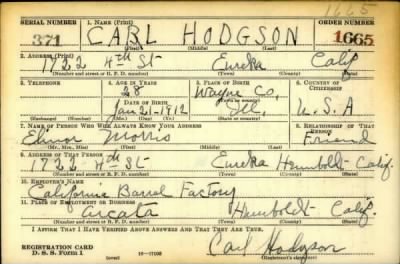 1665
SERIAL NUMBER 1. NAME (Print) ORDER NUMBER
371 CARL HODGSON 1665
(First) (Middle) (Last)
2. ADDRESS (Print)
1722 4th St Eureka Calif
(Number and street or R. F. D. number) (Town) (County) (State)
3. TELEPHONE 4. AGE IN YEARS 5. PLACE OF BIRTH 6. COUNTRY OF CITIZENSHIP
28 Wayne Co,
DATE OF BIRTH
Jan 21 1912 Ill. U.S.A
(Exchange) (No.) (Mo.) (Day) (Yr.) (State or country)
7. NAME OF PERSON WHO WILL ALWAYS KNOW YOUR ADDRESS 8. RELATIONSHIP OF THAT PERSON
Morris Friend
(Mr., Mrs., Miss) (First) (Middle) (Last)
9. ADDRESS OF THAT PERSON
1722 4th St Eureka Humboldt Calif.
(Number and street or R. F. D. number) (Town) (County) (State)
10. EMPLOYER'S NAME
California Barrel Factory
11. PLACE OF EMPLOYMENT OR BUSINESS
Arcata Humboldt Calif.
(Number and street or R. F. D. number) (Town) (County) (State)
I AFFIRM THAT I HAVE VERIFIED ABOVE ANSWERS AND THAT THEY ARE TRUE.
REGISTRATION CARD
D. S. S. Form 1 (over) 16—17105 Carl Hodgson
(Registrant's signature)